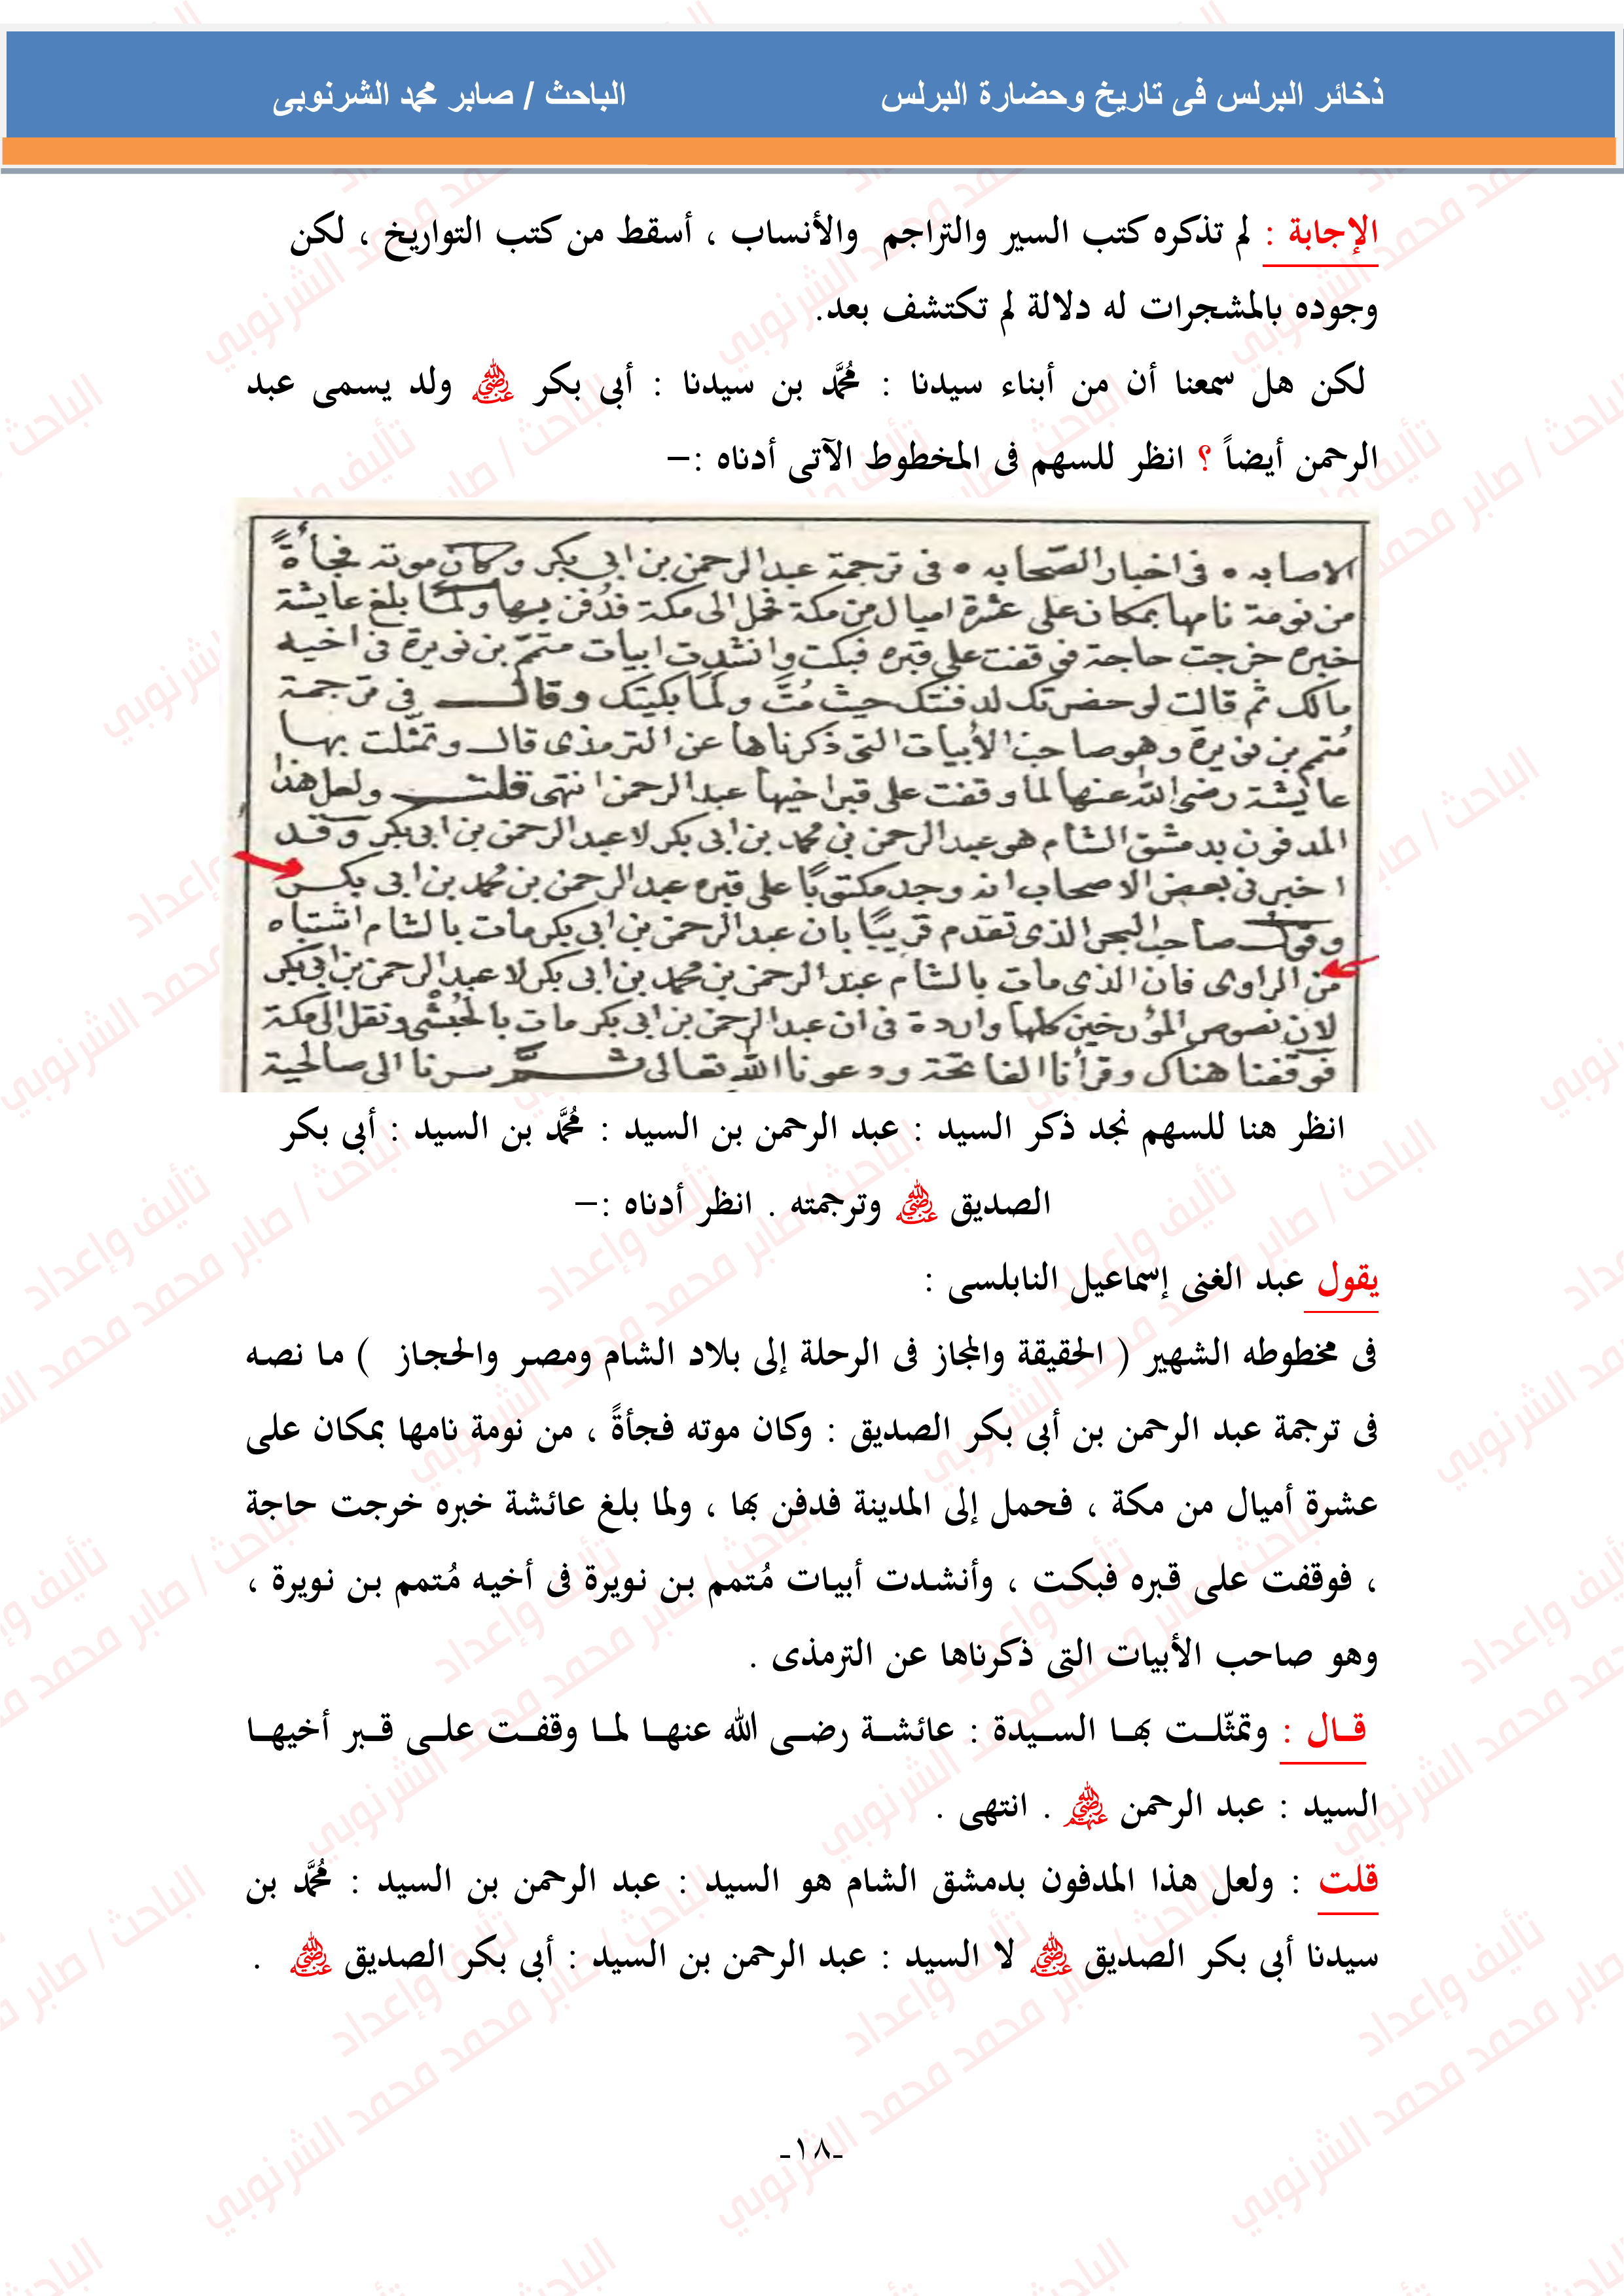 ذخائر البرلس فى تاريخ وحضارة البرلس الباحث / صابر محمد الشرنوبى
الإجابة : لم تذكره كتب السير والتراجم والأنساب ، أسقط من كتب التواريخ ، لكن
وجوده بالمشجرات له دلالة لم تكتشف بعد.
لكن هل سمعنا أن من أبناء سيدنا : مُحَمَّد بن سيدنا : أبى بكر ﵁ ولد يسمى عبد
الرحمن أيضاً ؟ انظر للسهم فى المخطوط الآتى أدناه :–
الاصابه ٥ فى اخبار الصّحابه ٥ فى ترجمة عبد الرحمن بن ابى بكر وكان موته فجأةً
من نومة نامها بمكان على عشرة اميال من مكة فحمل الى مكة فدُفن بها ولمّا بلغ عايشة
خبره خرجت حاجة فوقفت على قبره فبكت وانشدت ابيات متمّم بن نويرة فى اخيه
مالك ثم قالت لو حضرتك لدفنتك حيث مُتَّ ولمَا بكيتك وقال فى ترجمة
مُتمم بن نويرة وهو صاحب الأبيات التى ذكرناها عن الترمذى قال وتمثّلت بها
عايشة رضى الله عنها لما وقفت على قبر اخيها عبد الرحمن انتهى قلت ولعل هذا
المدفون بدمشق الشام هو عبد الرحمن بن محمد بن ابى بكر لا عبد الرحمن بن ابى بكر وقد
اخبرنى بعض الاصحاب انه وجد مكتوبًا على قبره عبد الرحمن بن محمد بن ابى بكر
وقول صاحب الذى تقدم قريبًا بان عبد الرحمن بن ابى بكر مات بالشام اشتباه
من الراوى فان الذى مات بالشام عبد الرحمن بن محمد بن ابى بكر لا عبد الرحمن بن ابى بكر
لان نصوص المؤرخين كلها واردة فى ان عبد الرحمن بن ابى بكر مات بالحُبْشى ونقل الى مكة
فوقفنا هناك وقرأنا الفاتحة ودعونا الله تعالى ثم سرنا الى صالحية
انظر هنا للسهم نجد ذكر السيد : عبد الرحمن بن السيد : مُحَمَّد بن السيد : أبى بكر
الصديق ﵁ وترجمته . انظر أدناه :–
يقول عبد الغنى إسماعيل النابلسى :
فى مخطوطه الشهير ( الحقيقة والمجاز فى الرحلة إلى بلاد الشام ومصر والحجاز ) ما نصه
فى ترجمة عبد الرحمن بن أبى بكر الصديق : وكان موته فجأةً ، من نومة نامها بمكان على
عشرة أميال من مكة ، فحمل إلى المدينة فدفن بها ، ولما بلغ عائشة خبره خرجت حاجة
، فوقفت على قبره فبكت ، وأنشدت أبيات مُتمم بن نويرة فى أخيه مُتمم بن نويرة ،
وهو صاحب الأبيات التى ذكرناها عن الترمذى .
قال : وتمثّلت بها السيدة : عائشة رضى الله عنها لما وقفت على قبر أخيها
السيد : عبد الرحمن ﵃ . انتهى .
قلت : ولعل هذا المدفون بدمشق الشام هو السيد : عبد الرحمن بن السيد : مُحَمَّد بن
سيدنا أبى بكر الصديق ﵁ لا السيد : عبد الرحمن بن السيد : أبى بكر الصديق ﵁ .
-١٨-